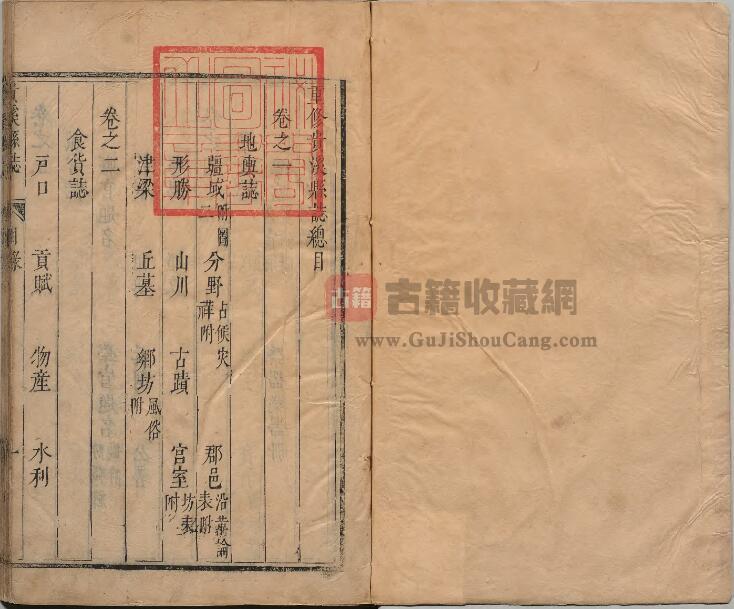 重修貴溪縣誌總目
卷之一
地輿誌
疆域 附圖二 分野 占候灾祥附 郡邑 沿革論表附
形勝 山川 古蹟 宫室 坊表附
津梁 丘墓 鄉坊 風俗附
卷之二
食貨誌
戸口 貢賦 物産 水利
貴溪縣誌 目錄 一
古籍 古籍收藏網
www.GuJiShouCang.com